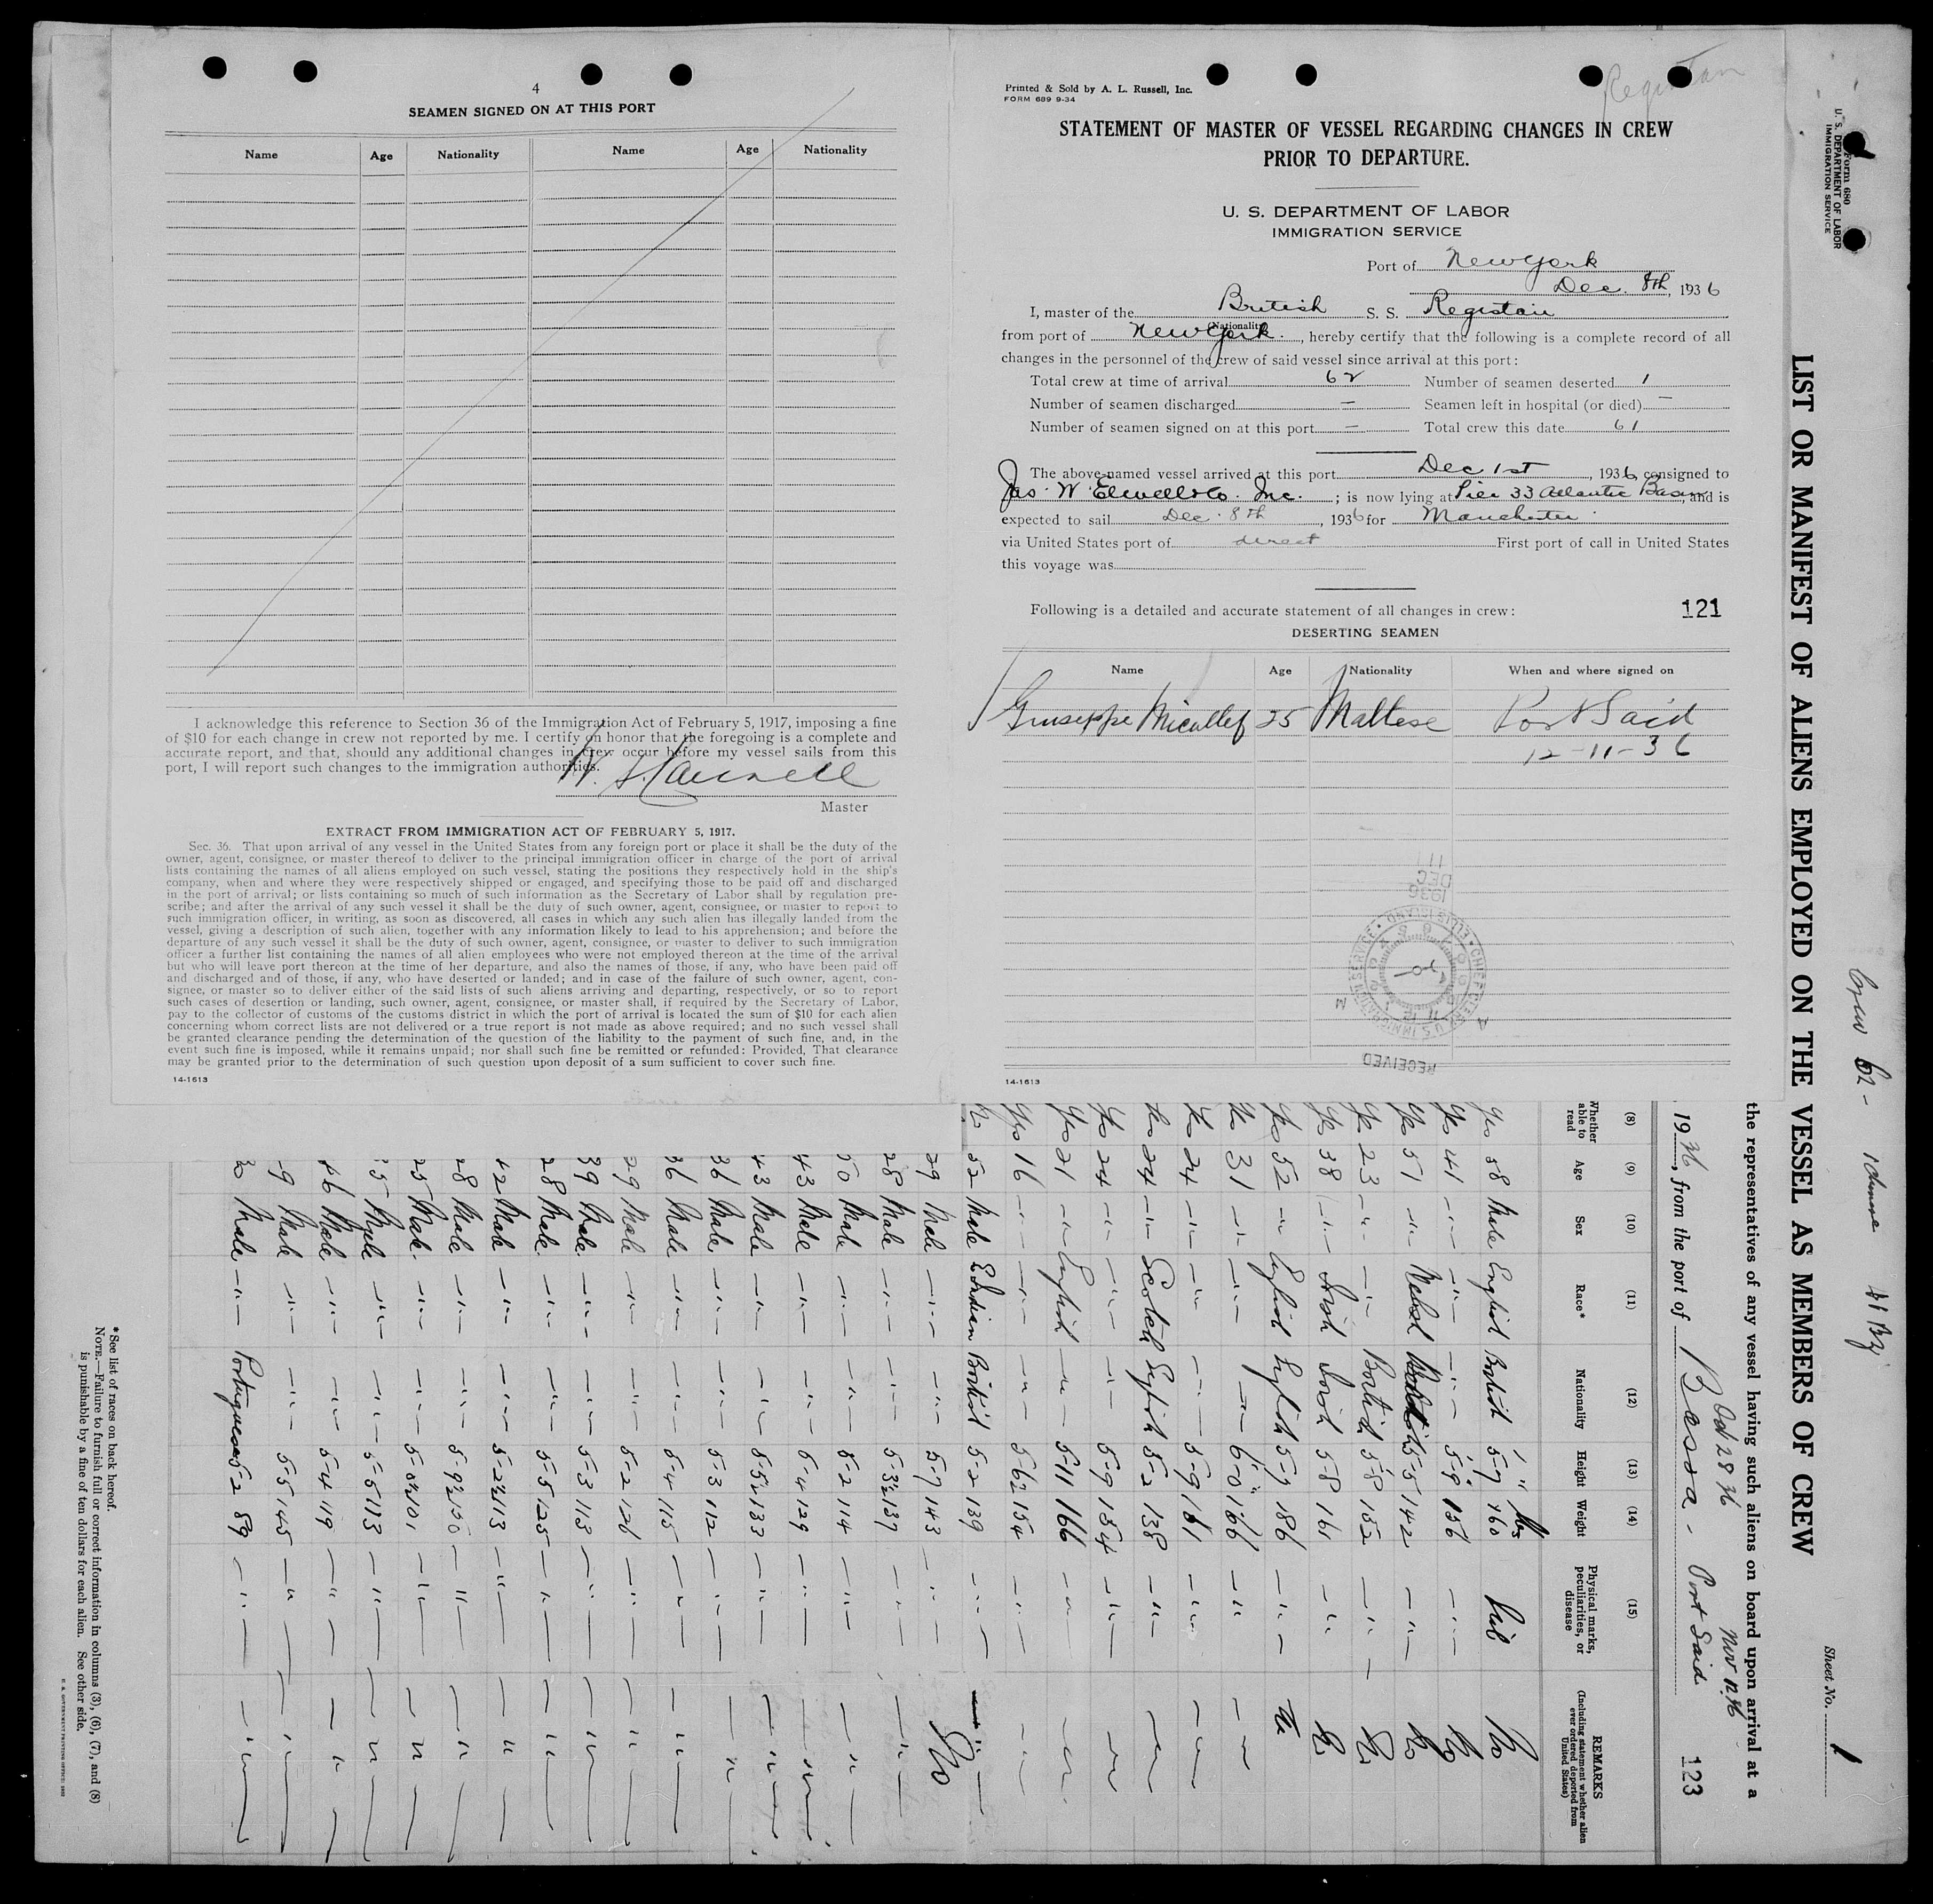 4
SEAMEN SIGNED ON AT THIS PORT
Name Age Nationality Name Age Nationality
I acknowledge this reference to Section 36 of the Immigration Act of February 5, 1917, imposing a fine
of $10 for each change in crew not reported by me. I certify on honor that the foregoing is a complete and
accurate report, and that, should any additional changes in crew occur before my vessel sails from this
port, I will report such changes to the immigration authorities.
Master
EXTRACT FROM IMMIGRATION ACT OF FEBRUARY 5, 1917.
Sec. 36. That upon arrival of any vessel in the United States from any foreign port or place it shall be the duty of the
owner, agent, consignee, or master thereof to deliver to the principal immigration officer in charge of the port of arrival
lists containing the names of all aliens employed on such vessel, stating the positions they respectively hold in the ship's
company, when and where they were respectively shipped or engaged, and specifying those to be paid off and discharged
in the port of arrival; or lists containing so much of such information as the Secretary of Labor shall by regulation pre-
scribe; and after the arrival of any such vessel it shall be the duty of such owner, agent, consignee, or master to report to
such immigration officer, in writing, as soon as discovered, all cases in which any such alien has illegally landed from the
vessel, giving a description of such alien, together with any information likely to lead to his apprehension; and before the
departure of any such vessel it shall be the duty of such owner, agent, consignee, or master to deliver to such immigration
officer a further list containing the names of all alien employees who were not employed thereon at the time of the arrival
but who will leave port thereon at the time of her departure, and also the names of those, if any, who have been paid off
and discharged and of those, if any, who have deserted or landed; and in case of the failure of such owner, agent, con-
signee, or master so to deliver either of the said lists of such aliens arriving and departing, respectively, or so to report
such cases of desertion or landing, such owner, agent, consignee, or master shall, if required by the Secretary of Labor,
pay to the collector of customs of the customs district in which the port of arrival is located the sum of $10 for each alien
concerning whom correct lists are not delivered or a true report is not made as above required; and no such vessel shall
be granted clearance pending the determination of the question of the liability to the payment of such fine, and, in the
event such fine is imposed, while it remains unpaid; nor shall such fine be remitted or refunded: Provided, That clearance
may be granted prior to the determination of such question upon deposit of a sum sufficient to cover such fine.
14-1613
Registan
Printed & Sold by A. L. Russell, Inc.
FORM 689 9-34
STATEMENT OF MASTER OF VESSEL REGARDING CHANGES IN CREW
PRIOR TO DEPARTURE.
U. S. DEPARTMENT OF LABOR
IMMIGRATION SERVICE
Port of New York
Dec. 8th, 1936
I, master of the British S. S. Registan
(Nationality)
from port of New York., hereby certify that the following is a complete record of all
changes in the personnel of the crew of said vessel since arrival at this port:
Total crew at time of arrival 62 Number of seamen deserted 1
Number of seamen discharged — Seamen left in hospital (or died) —
Number of seamen signed on at this port — Total crew this date 61
The above-named vessel arrived at this port Dec 1st, 1936, consigned to
Jas. W. Elwell & Co. Inc. ; is now lying at Pier 33 Atlantic Basin, and is
expected to sail Dec. 8th, 1936 for Manchester.
via United States port of direct First port of call in United States
this voyage was
Following is a detailed and accurate statement of all changes in crew: 121
DESERTING SEAMEN
Name Age Nationality When and where signed on
Giuseppe Micallef 25 Maltese Port Said
12-11-36
RECEIVED
DEC
1936
14-1613
Form 680
U. S. DEPARTMENT OF LABOR
IMMIGRATION SERVICE
LIST OR MANIFEST OF ALIENS EMPLOYED ON THE VESSEL AS MEMBERS OF CREW
Sheet No. 1
Crew 62 -
the representatives of any vessel having such aliens on board upon arrival at a
Oct 28 36
1936, from the port of Basra - Port Said
123
(8) (9) (10) (11) (12) (13) (14) (15)
Whether able to read
Age
Sex
Race*
Nationality
Height
Weight
Physical marks, peculiarities, or disease
REMARKS
(Including statement whether alien ever ordered deported from United States)
Yes 58 Male English British 5-7 160 Nil No
41 5-9 156
51 Welsh 5-5 142
23 British 5-8 152
38 Irish Irish 5-8 161
52 English English 5-7 186
31 6-0 166
24 5-9 161
24 Scotch English 5-2 138
24 5-9 154
Yes 21 English 5-11 166
Yes 16 154
52 Male E Indian British 5-2 139
29 Male 5-7 143 No
28 Male 137
50 Male 5-2 114
43 Male 5-4 129
43 Male 133
36 Male 5-3 112
36 Male 5-4 115
29 Male 5-2 126
39 Male 5-3 113
28 Male 5-5 125
42 Male 113
28 Male
25 Male 101
Male 113
46 Male 5-4 119
Male 5-5 145
Male Portuguese 5-2 89
* See list of races on back hereof.
NOTE.—Failure to furnish full or correct information in columns (3), (6), (7), and (8)
is punishable by a fine of ten dollars for each alien. See other side.